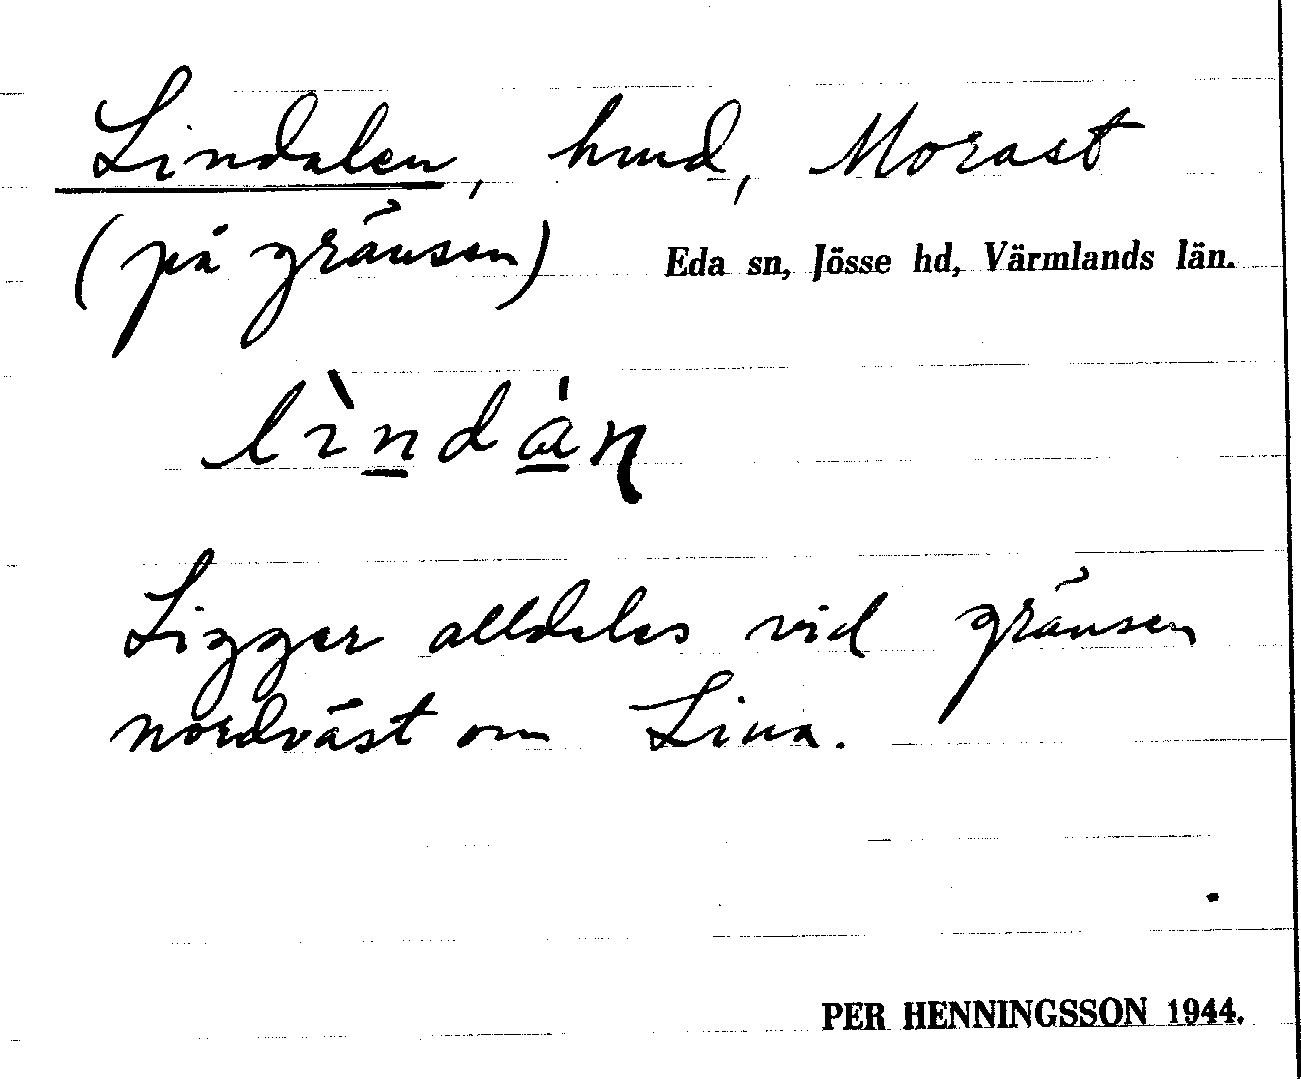 Lindalen, hmd, Morast
(på gränsen) Eda sn, Jösse hd, Värmlands län.
lìn̲da̲̍ɳ
Ligger alldeles vid gränsen
nordväst om Lina.
PER HENNINGSSON 1944.